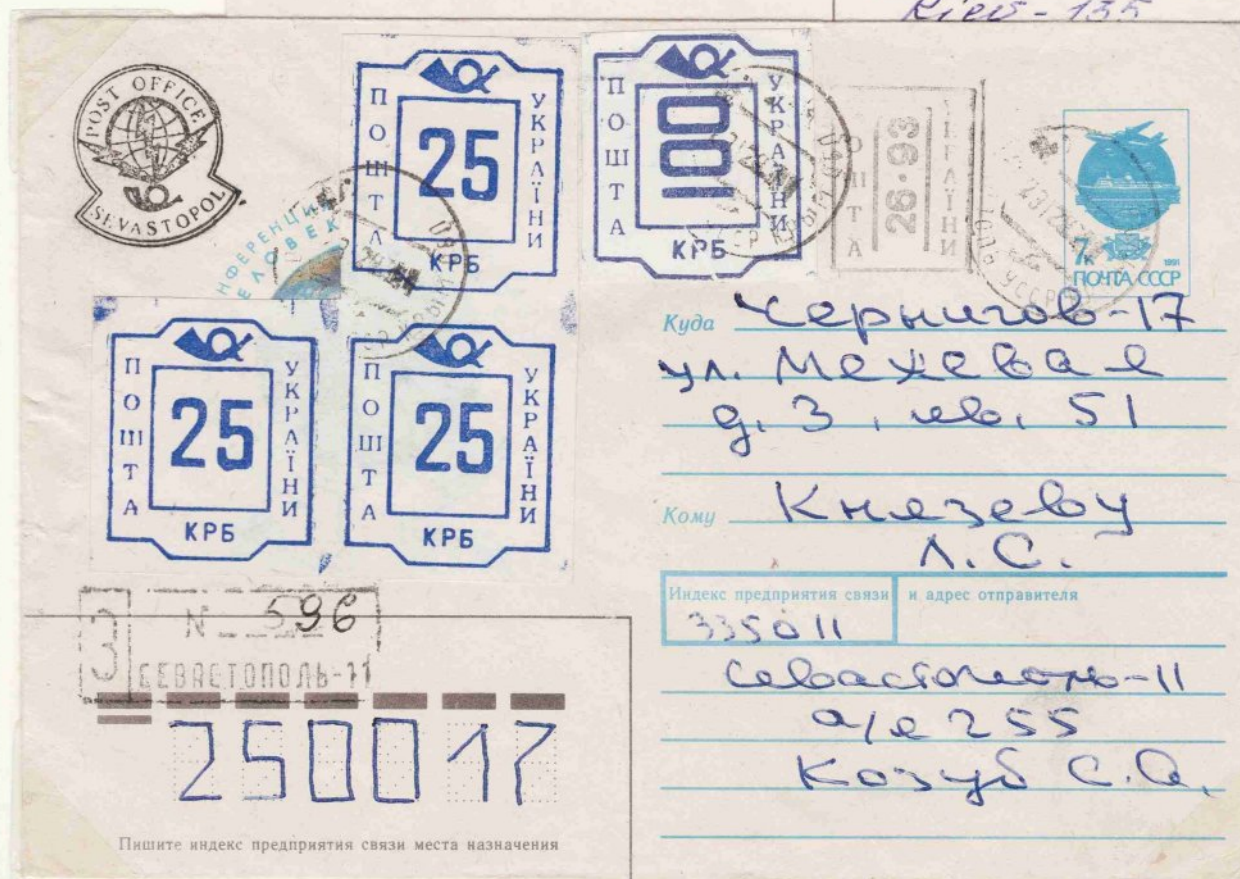 Kiev - 135
POST OFFICE
SEVASTOPOL
НФЕРЕНЦИ
ЕЛОВЕК
ПОШТА
25
УКРАЇНИ
КРБ
ПОШТА
100
УКРАЇНИ
КРБ
ШТА
26·93
КРАЇНИ
7к
1991
ПОЧТА СССР
ПОШТА
25
УКРАЇНИ
КРБ
ПОШТА
25
УКРАЇНИ
КРБ
Куда Чернигов-17
ул. Межевая
д. 3, кв. 51
Кому Князеву
Л.С.
Индекс предприятия связи и адрес отправителя
335011
Севастополь-11
а/я 255
Козуб С.А.
З
N 596
СЕВАСТОПОЛЬ-11
250017
Пишите индекс предприятия связи места назначения